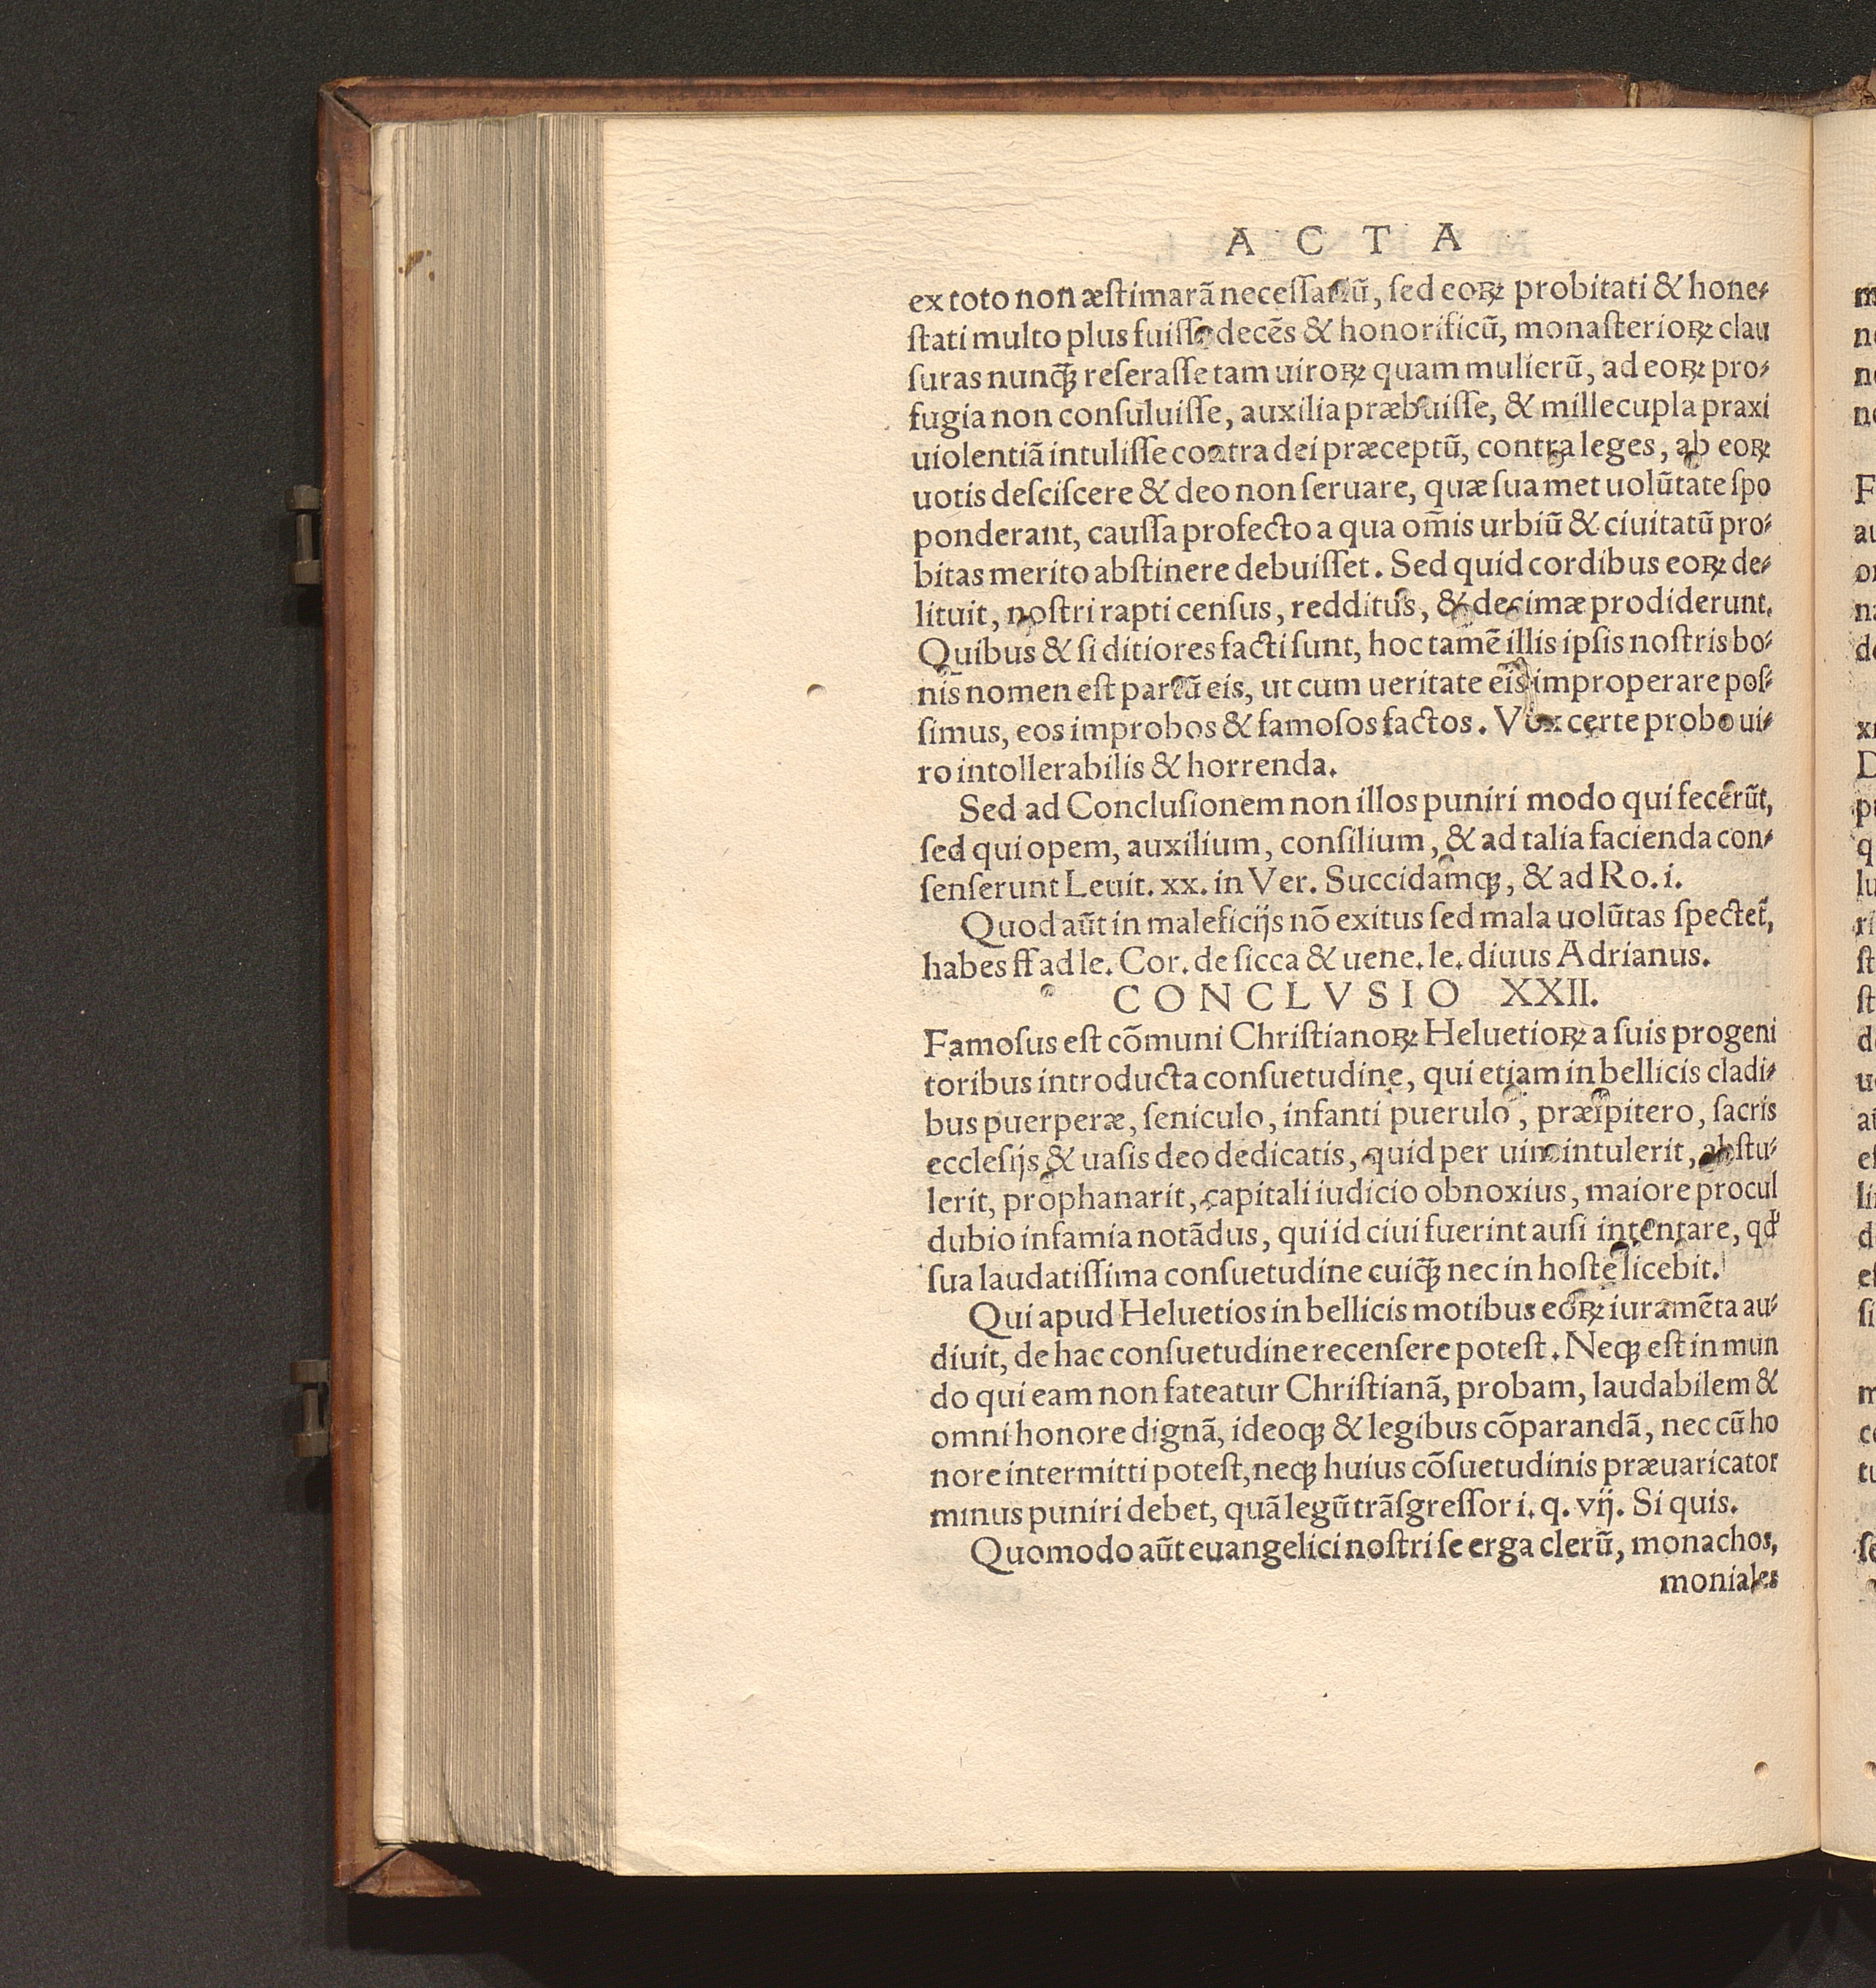 A C T A
ex toto non æstimarã necessariũ, sed eoꝝ probitati & hone⸗
stati multo plus fuisse decẽs & honorificũ, monasterioꝝ clau
suras nunꝗ̃ reserasse tam uiroꝝ quam mulierũ, ad eoꝝ pro⸗
fugia non consuluisse, auxilia præbuisse, & millecupla praxi
uiolentiã intulisse contra dei præceptũ, contra leges, ab eoꝝ
uotis desciscere & deo non seruare, quæ suamet uolũtate spo
ponderant, caussa profecto a qua om̃is urbiũ & ciuitatũ pro⸗
bitas merito abstinere debuisset. Sed quid cordibus eoꝝ de⸗
lituit, nostri rapti census, redditus, & decimæ prodiderunt.
Quibus & si ditiores facti sunt, hoc tamẽ illis ipsis nostris bo⸗
nis nomen est partũ eis, ut cum ueritate eis improperare pos⸗
simus, eos improbos & famosos factos. Vox certe probo ui⸗
ro intollerabilis & horrenda.
Sed ad Conclusionem non illos puniri modo qui fecerũt,
sed qui opem, auxilium, consilium, & ad talia facienda con⸗
senserunt Leuit. xx. in Ver. Succidamqꝫ, & ad Ro. i.
Quod aũt in maleficijs nõ exitus sed mala uolũtas spectet̃,
habes ff ad le. Cor. de sicca & uene. le. diuus Adrianus.
CONCLVSIO XXII.
Famosus est cõmuni Christianoꝝ Heluetioꝝ a suis progeni
toribus introducta consuetudine, qui etiam in bellicis cladi⸗
bus puerperæ, seniculo, infanti puerulo, præsipitero, sacris
ecclesijs & uasis deo dedicatis, quid per uim intulerit, abstu⸗
lerit, prophanarit, capitali iudicio obnoxius, maiore procul
dubio infamia notãdus, qui id ciui fuerint ausi intentare, qd'
sua laudatissima consuetudine cuiꝗ̃ nec in hoste licebit.
Qui apud Heluetios in bellicis motibus eoꝝ iuramẽta au⸗
diuit, de hac consuetudine recensere potest. Neqꝫ est in mun
do qui eam non fateatur Christianã, probam, laudabilem &
omni honore dignã, ideoqꝫ & legibus cõparandã, nec cũ ho
nore intermitti potest, neqꝫ huius cõsuetudinis præuaricator
minus puniri debet, quã legũ trãsgressor i. q. vij. Si quis.
Quomodo aũt euangelici nostri se erga clerũ, monachos,
moniales